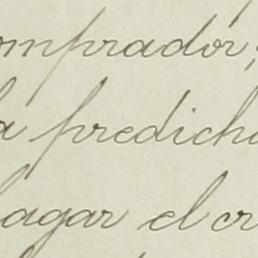 omprador;
a predicha
pagar el cr